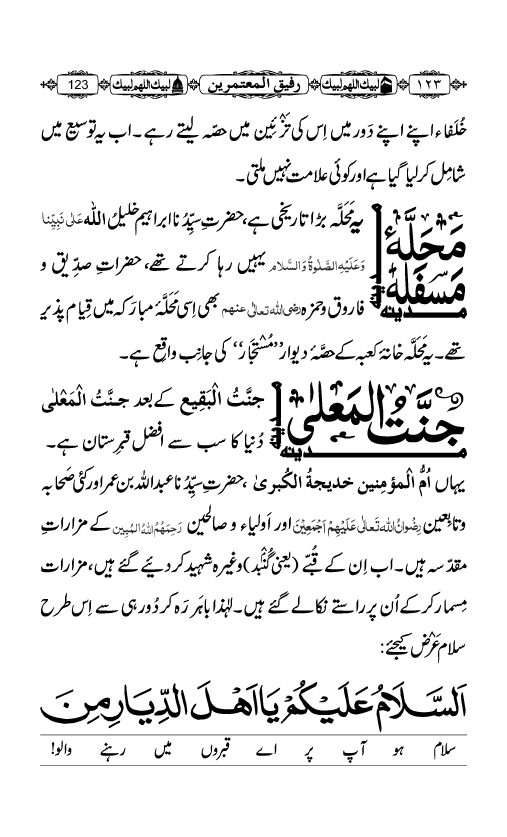 ۱۲۳ لبیك اللھم لبیك رفیق الْمعتمرین لبیك اللھم لبیك 123
خُلَفاء اپنے اپنے دَور میں اِس کی تزئین میں حصّہ لیتے رہے ۔ اب یہ توسیع میں
شامِل کر لیا گیا ہے اور کوئی علامت نہیں ملتی ۔
مَحَلَّۂ مَسفَلَہ
یہ مَحَلّہ بڑا تاریخی ہے، حضرتِ سیِّدُنا ابراہیم خلیلُ اللہ عَلٰی نَبِیِّنَا
وَعَلَیْہِ الصَّلٰوۃُ وَالسَّلَام یہیں رہا کرتے تھے، حضراتِ صِدّیق و
فاروق و حمزہ رضی اللہ تعالٰی عنھم بھی اِسی مَحَلَّۂ مبارَکہ میں قِیام پذیر
تھے ۔ یہ مَحَلّہ خانۂ کعبہ کے حصّۂ دیوار ’’مُسْتَجار‘‘ کی جانِب واقِع ہے۔
جَنَّتُ الْمَعْلٰی
جنَّتُ الْبَقِیع کے بعد جنَّتُ الْمَعْلٰی
دُنیا کا سب سے افضل قبرِستان ہے ۔
یہاں اُمُّ الْمؤمِنین خدیجۃُ الکُبریٰ ، حضرتِ سیِّدُنا عبداللہ بن عمر اور کئی صَحابہ
و تابِعین رِضْوَانُ اللہِ تَعَالٰی عَلَیْھِمْ اَجْمَعِیْنَ اور اَولیاء و صالحین رَحِمَھُمُ اللہُ الْمُبِین کے مزارات
مقدّسہ ہیں ۔ اب اِن کے قُبّے (یعنی گُنْبَد) وغیرہ شہید کر دیئے گئے ہیں، مزارات
مِسمار کر کے اُن پر راستے نکالے گئے ہیں ۔ لہٰذا باہَر رَہ کر دُور ہی سے اِس طرح
سلام عَرْض کیجئے :
اَلسَّلَامُ عَلَیْکُمْ یَا اَھْلَ الدِّیَارِ مِنَ
سلام ہو آپ پر اے قبروں میں رہنے والو!